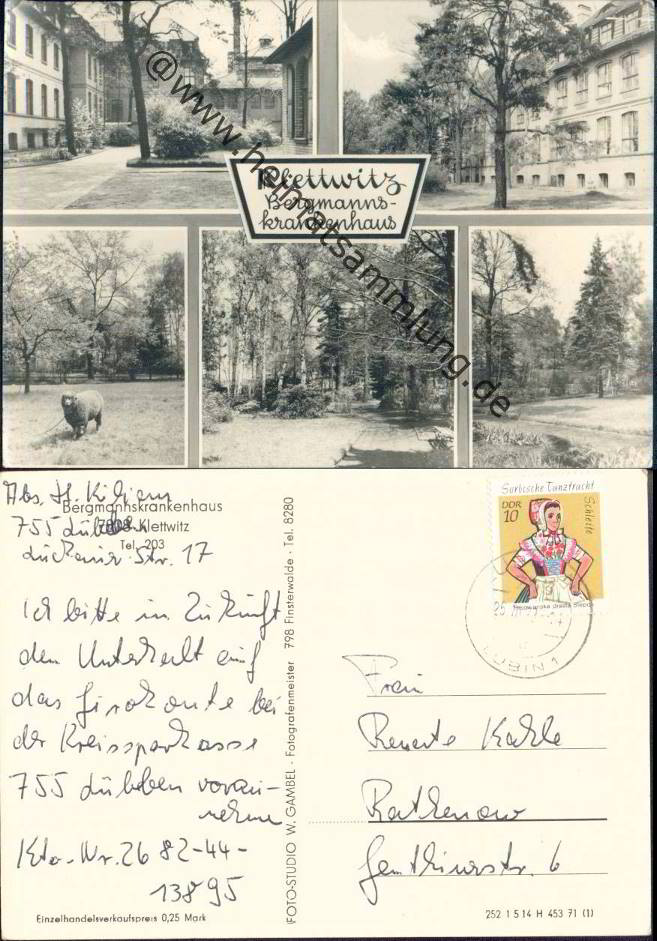 Klettwitz
Bergmanns-
krankenhaus
@www.heimatsammlung.de
Abs. H. Kilian
Bergmannskrankenhaus
755 Lübben
Klettwitz
Tel. 203
Luckauer Str. 17
Ich bitte in Zukunft
den Unterhalt auf
das Girokonto bei
der Kreissparkasse
755 Lübben vorzu-
nehmen
Kto.-Nr. 26 82-44-
13895
Einzelhandelsverkaufspreis 0,25 Mark
FOTO-STUDIO W. GAMBEL · Fotografenmeister 798 Finsterwalde · Tel. 8280
Sorbische Tanztracht
DDR
10
Schleife
LÜBBEN 1
Frau
Renate Kahle
Rathenow
Genthiner str. 6
252 1 5 14 H 453 71 (1)